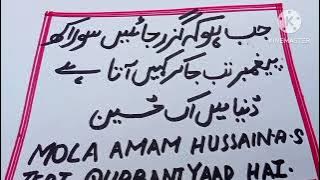 جب ہوکہ گزر جائیں سوا لاکھ
پیغمبر تب جاکر کہیں آتا ہے
دُنیا میں اک حُسین
KINEMASTER
MOLA AMAM HUSSAIN A.S
TERI QURBANI YAAD HAI.